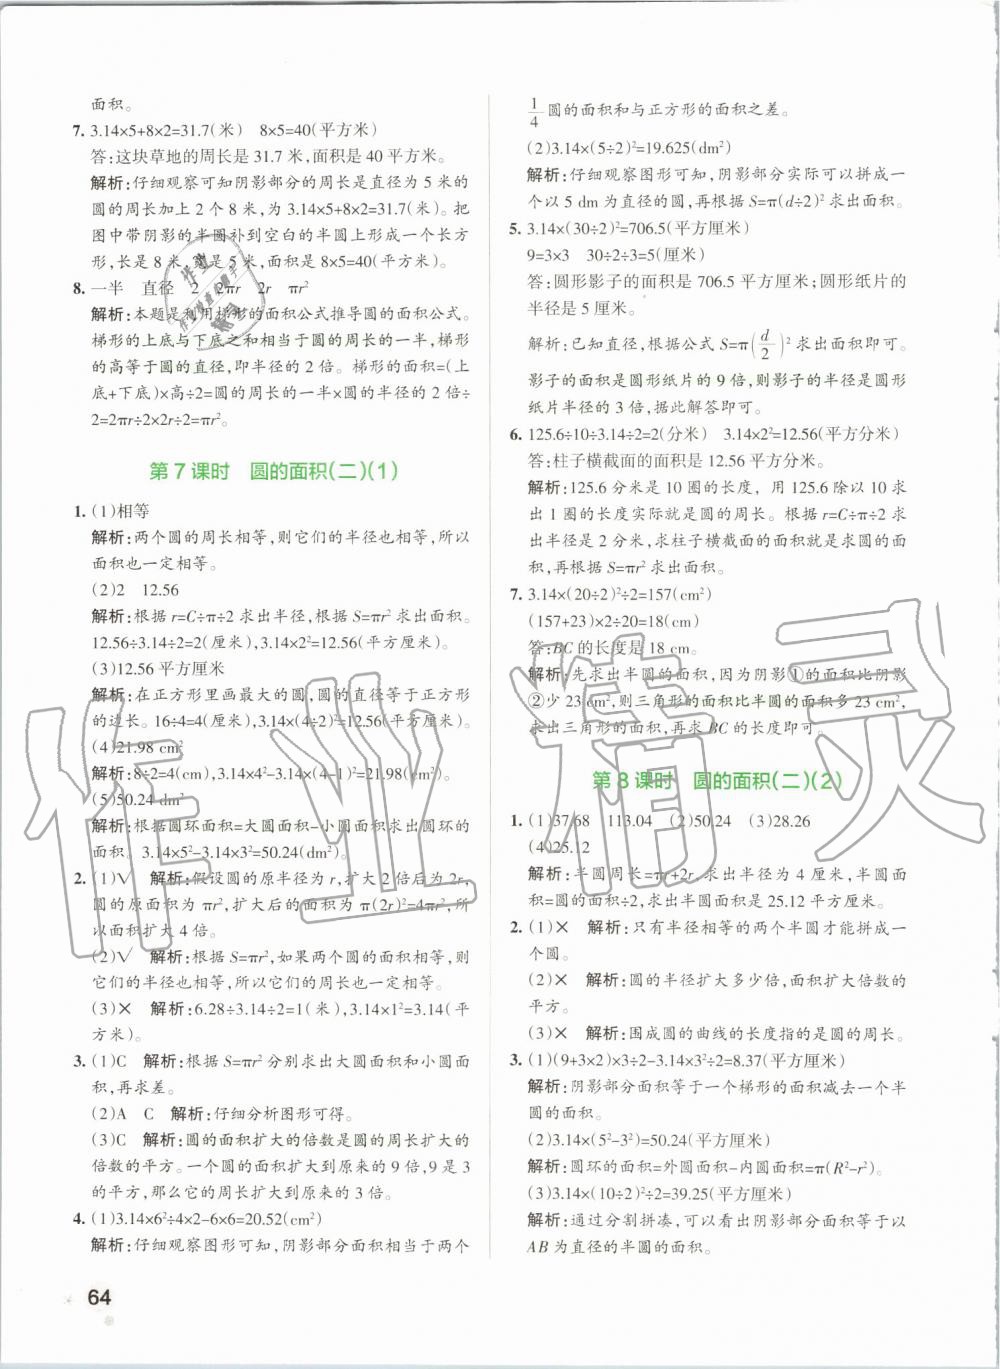 面积。
7. 3.14×5+8×2=31.7(米)　8×5=40(平方米)
答:这块草地的周长是 31.7 米,面积是 40 平方米。
解析:仔细观察可知阴影部分的周长是直径为 5 米的
圆的周长加上 2 个 8 米,为 3.14×5+8×2=31.7(米)。把
图中带阴影的半圆补到空白的半圆上形成一个长方
形,长是 8 米,宽是 5 米,面积是 8×5=40(平方米)。
8. 一半　直径　2　2πr　2r　πr²
解析:本题是利用梯形的面积公式推导圆的面积公式。
梯形的上底与下底之和相当于圆的周长的一半,梯形
的高等于圆的直径,即半径的 2 倍。梯形的面积=(上
底+下底)×高÷2=圆的周长的一半×圆的半径的 2 倍÷
2=2πr÷2×2r÷2=πr²。
第 7 课时　圆的面积(二)(1)
1. (1)相等
解析:两个圆的周长相等,则它们的半径也相等,所以
面积也一定相等。
(2)2　12.56
解析:根据 r=C÷π÷2 求出半径,根据 S=πr² 求出面积。
12.56÷3.14÷2=2(厘米),3.14×2²=12.56(平方厘米)。
(3)12.56 平方厘米
解析:在正方形里画最大的圆,圆的直径等于正方形
的边长。16÷4=4(厘米),3.14×(4÷2)²=12.56(平方厘米)。
(4)21.98 cm²
解析:8÷2=4(cm),3.14×4²-3.14×(4-1)²=21.98(cm²)。
(5)50.24 dm²
解析:根据圆环面积=大圆面积-小圆面积求出圆环的
面积。3.14×5²-3.14×3²=50.24(dm²)。
2. (1)√　解析:假设圆的原半径为 r,扩大 2 倍后为 2r,
圆的原面积为 πr²,扩大后的面积为 π(2r)²=4πr²,所
以面积扩大 4 倍。
(2)√　解析:根据 S=πr²,如果两个圆的面积相等,则
它们的半径也相等,所以它们的周长也一定相等。
(3)×　解析:6.28÷3.14÷2=1(米),3.14×1²=3.14(平
方米)。
3. (1)C　解析:根据 S=πr² 分别求出大圆面积和小圆面
积,再求差。
(2)A　C　解析:仔细分析图形可得。
(3)C　解析:圆的面积扩大的倍数是圆的周长扩大的
倍数的平方。一个圆的面积扩大到原来的 9 倍,9 是 3
的平方,那么它的周长扩大到原来的 3 倍。
4. (1)3.14×6²÷4×2-6×6=20.52(cm²)
解析:仔细观察图形可知,阴影部分面积相当于两个
64
1/4 圆的面积和与正方形的面积之差。
(2)3.14×(5÷2)²=19.625(dm²)
解析:仔细观察图形可知,阴影部分实际可以拼成一
个以 5 dm 为直径的圆,再根据 S=π(d÷2)² 求出面积。
5. 3.14×(30÷2)²=706.5(平方厘米)
9=3×3　30÷2÷3=5(厘米)
答:圆形影子的面积是 706.5 平方厘米;圆形纸片的
半径是 5 厘米。
解析:已知直径,根据公式 S=π(d/2)² 求出面积即可。
影子的面积是圆形纸片的 9 倍,则影子的半径是圆形
纸片半径的 3 倍,据此解答即可。
6. 125.6÷10÷3.14÷2=2(分米)　3.14×2²=12.56(平方分米)
答:柱子横截面的面积是 12.56 平方分米。
解析:125.6 分米是 10 圈的长度，用 125.6 除以 10 求
出 1 圈的长度实际就是圆的周长。根据 r=C÷π÷2 求
出半径是 2 分米,求柱子横截面的面积就是求圆的面
积,再根据 S=πr² 求出面积。
7. 3.14×(20÷2)²÷2=157(cm²)
(157+23)×2÷20=18(cm)
答:BC 的长度是 18 cm。
解析:先求出半圆的面积,因为阴影①的面积比阴影
②少 23 cm²,则三角形的面积比半圆的面积多 23 cm²,
求出三角形的面积,再求 BC 的长度即可。
第 8 课时　圆的面积(二)(2)
1. (1)37.68　113.04　(2)50.24　(3)28.26
(4)25.12
解析:半圆周长=πr+2r,求出半径为 4 厘米,半圆面
积=圆的面积÷2,求出半圆面积是 25.12 平方厘米。
2. (1)×　解析:只有半径相等的两个半圆才能拼成一
个圆。
(2)×　解析:圆的半径扩大多少倍,面积扩大倍数的
平方。
(3)×　解析:围成圆的曲线的长度指的是圆的周长。
3. (1)(9+3×2)×3÷2-3.14×3²÷2=8.37(平方厘米)
解析:阴影部分面积等于一个梯形的面积减去一个半
圆的面积。
(2)3.14×(5²-3²)=50.24(平方厘米)
解析:圆环的面积=外圆面积-内圆面积=π(R²-r²)。
(3)3.14×(10÷2)²÷2=39.25(平方厘米)
解析:通过分割拼凑,可以看出阴影部分面积等于以
AB 为直径的半圆的面积。
作业精灵